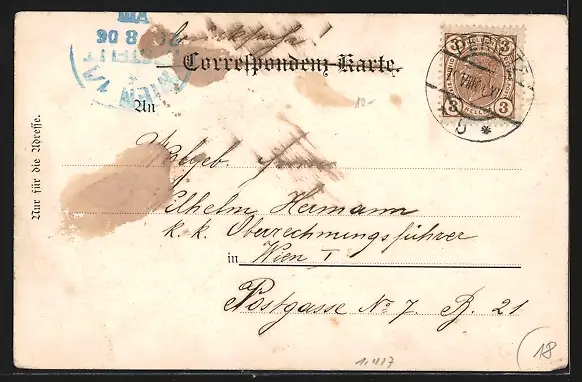 Drucksache!
Correspondenz-Karte.
An
Wohlgeb. Herrn
Wilhelm Hermann
k. k. Oberrechnungsführer
in Wien I
Postgasse No 7. B. 21
Nur für die Adresse.
WIEN 1/1
8 06
VIII
3 3
3 3
18